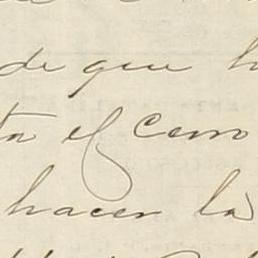 de que h
ta el Cerro
hacer la